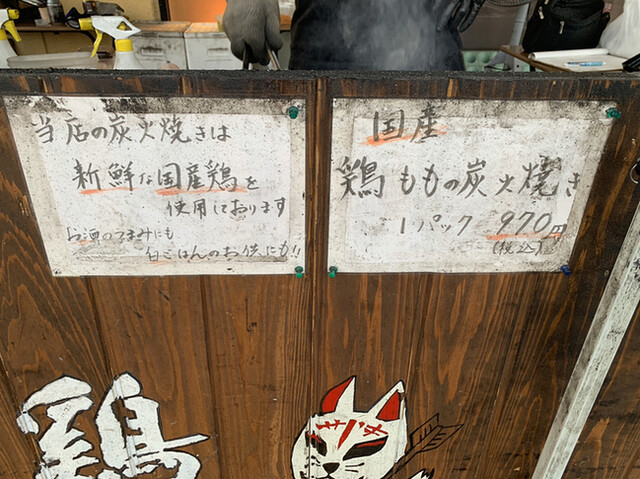 当店の炭火焼きは
新鮮な国産鶏を
使用しております
お酒のつまみにも
白ごはんのお供にも!!
国産
鶏ももの炭火焼き
1パック 970円
(税込)
鶏